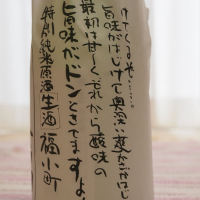 けてくるぞ……
旨味がはじけて奥深い
最初は甘〜く、それから酸味の
旨味がドンときてますよ
特別純米原酒 生酒 福小町